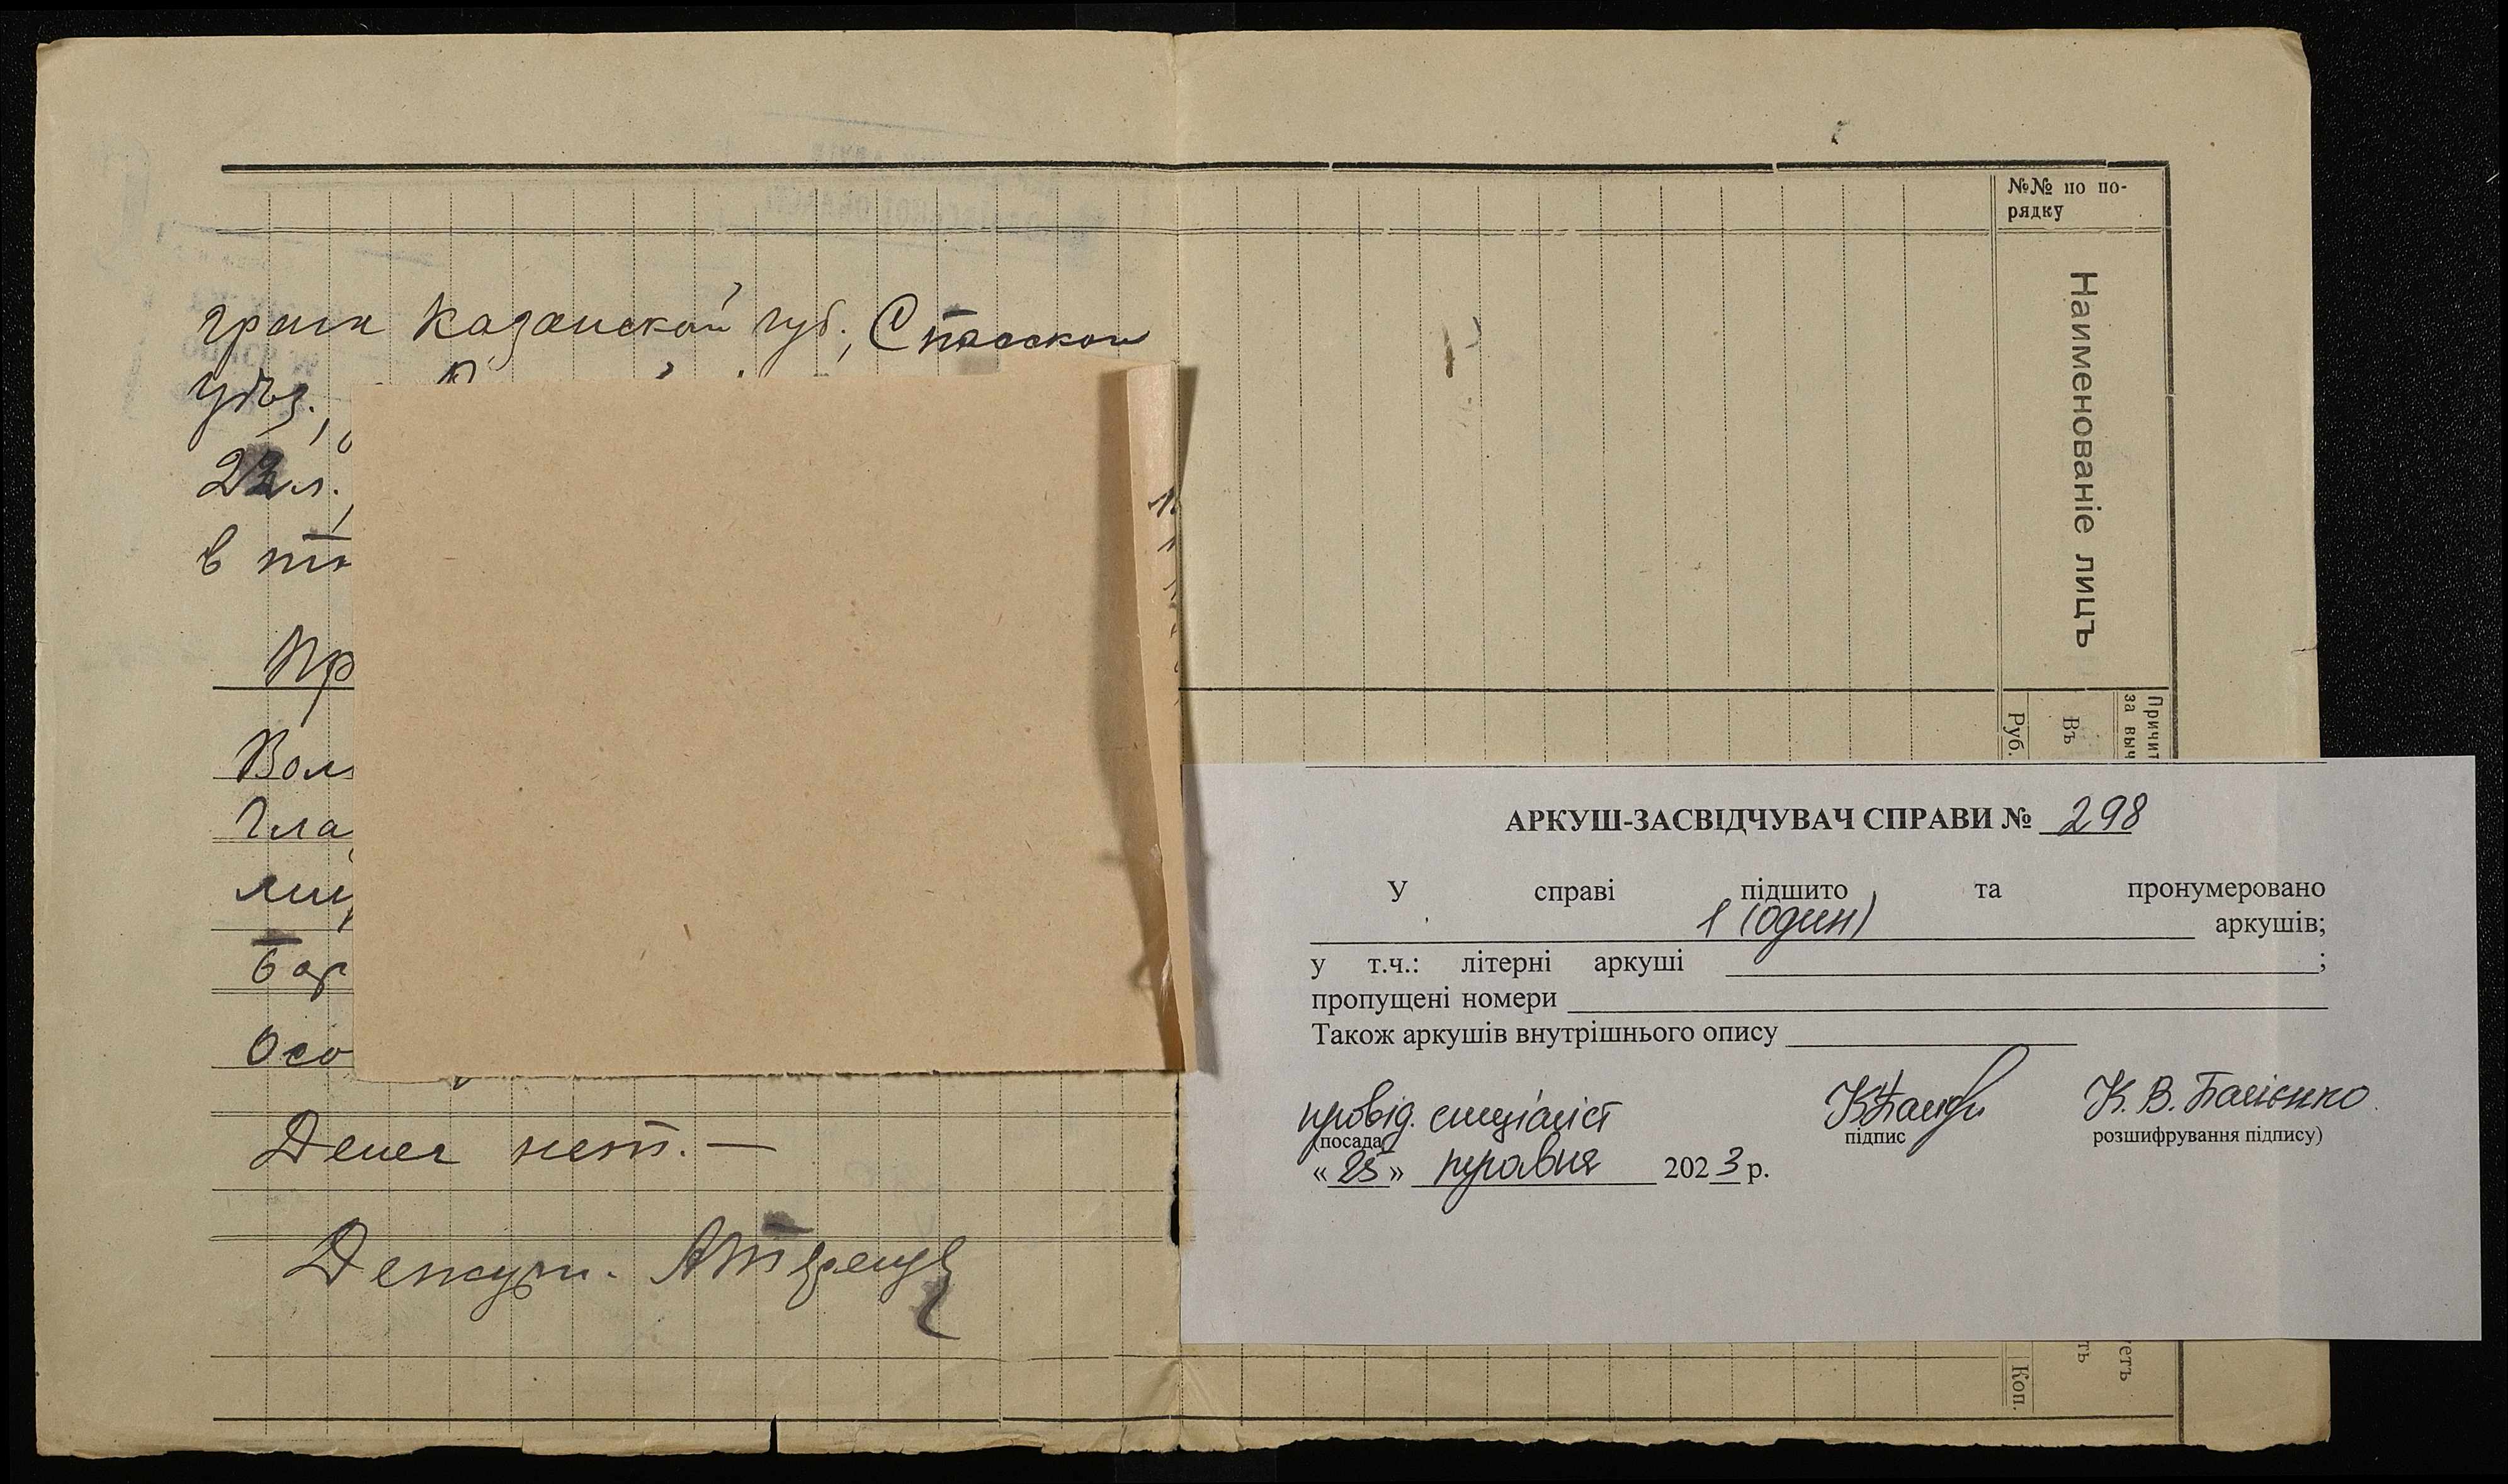 граж Казанской губ., Спасскои
уѣз.,
22 л.,
в
Пр
Вол
Гла
лиц
бор
Осо
Денег нет. —
Дежурн.
№№ по по-
рядку
Наименованіе лицъ
Причит
за выч
Въ
Руб.
АРКУШ-ЗАСВІДЧУВАЧ СПРАВИ № 298
У справі підшито та пронумеровано
1 (один) аркушів;
у т.ч.: літерні аркуші ;
пропущені номери
Також аркушів внутрішнього опису
провід. спеціаліст К. В.
(посада підпис розшифрування підпису)
« 25 » травня 2023 р.
етъ
ть
Коп.